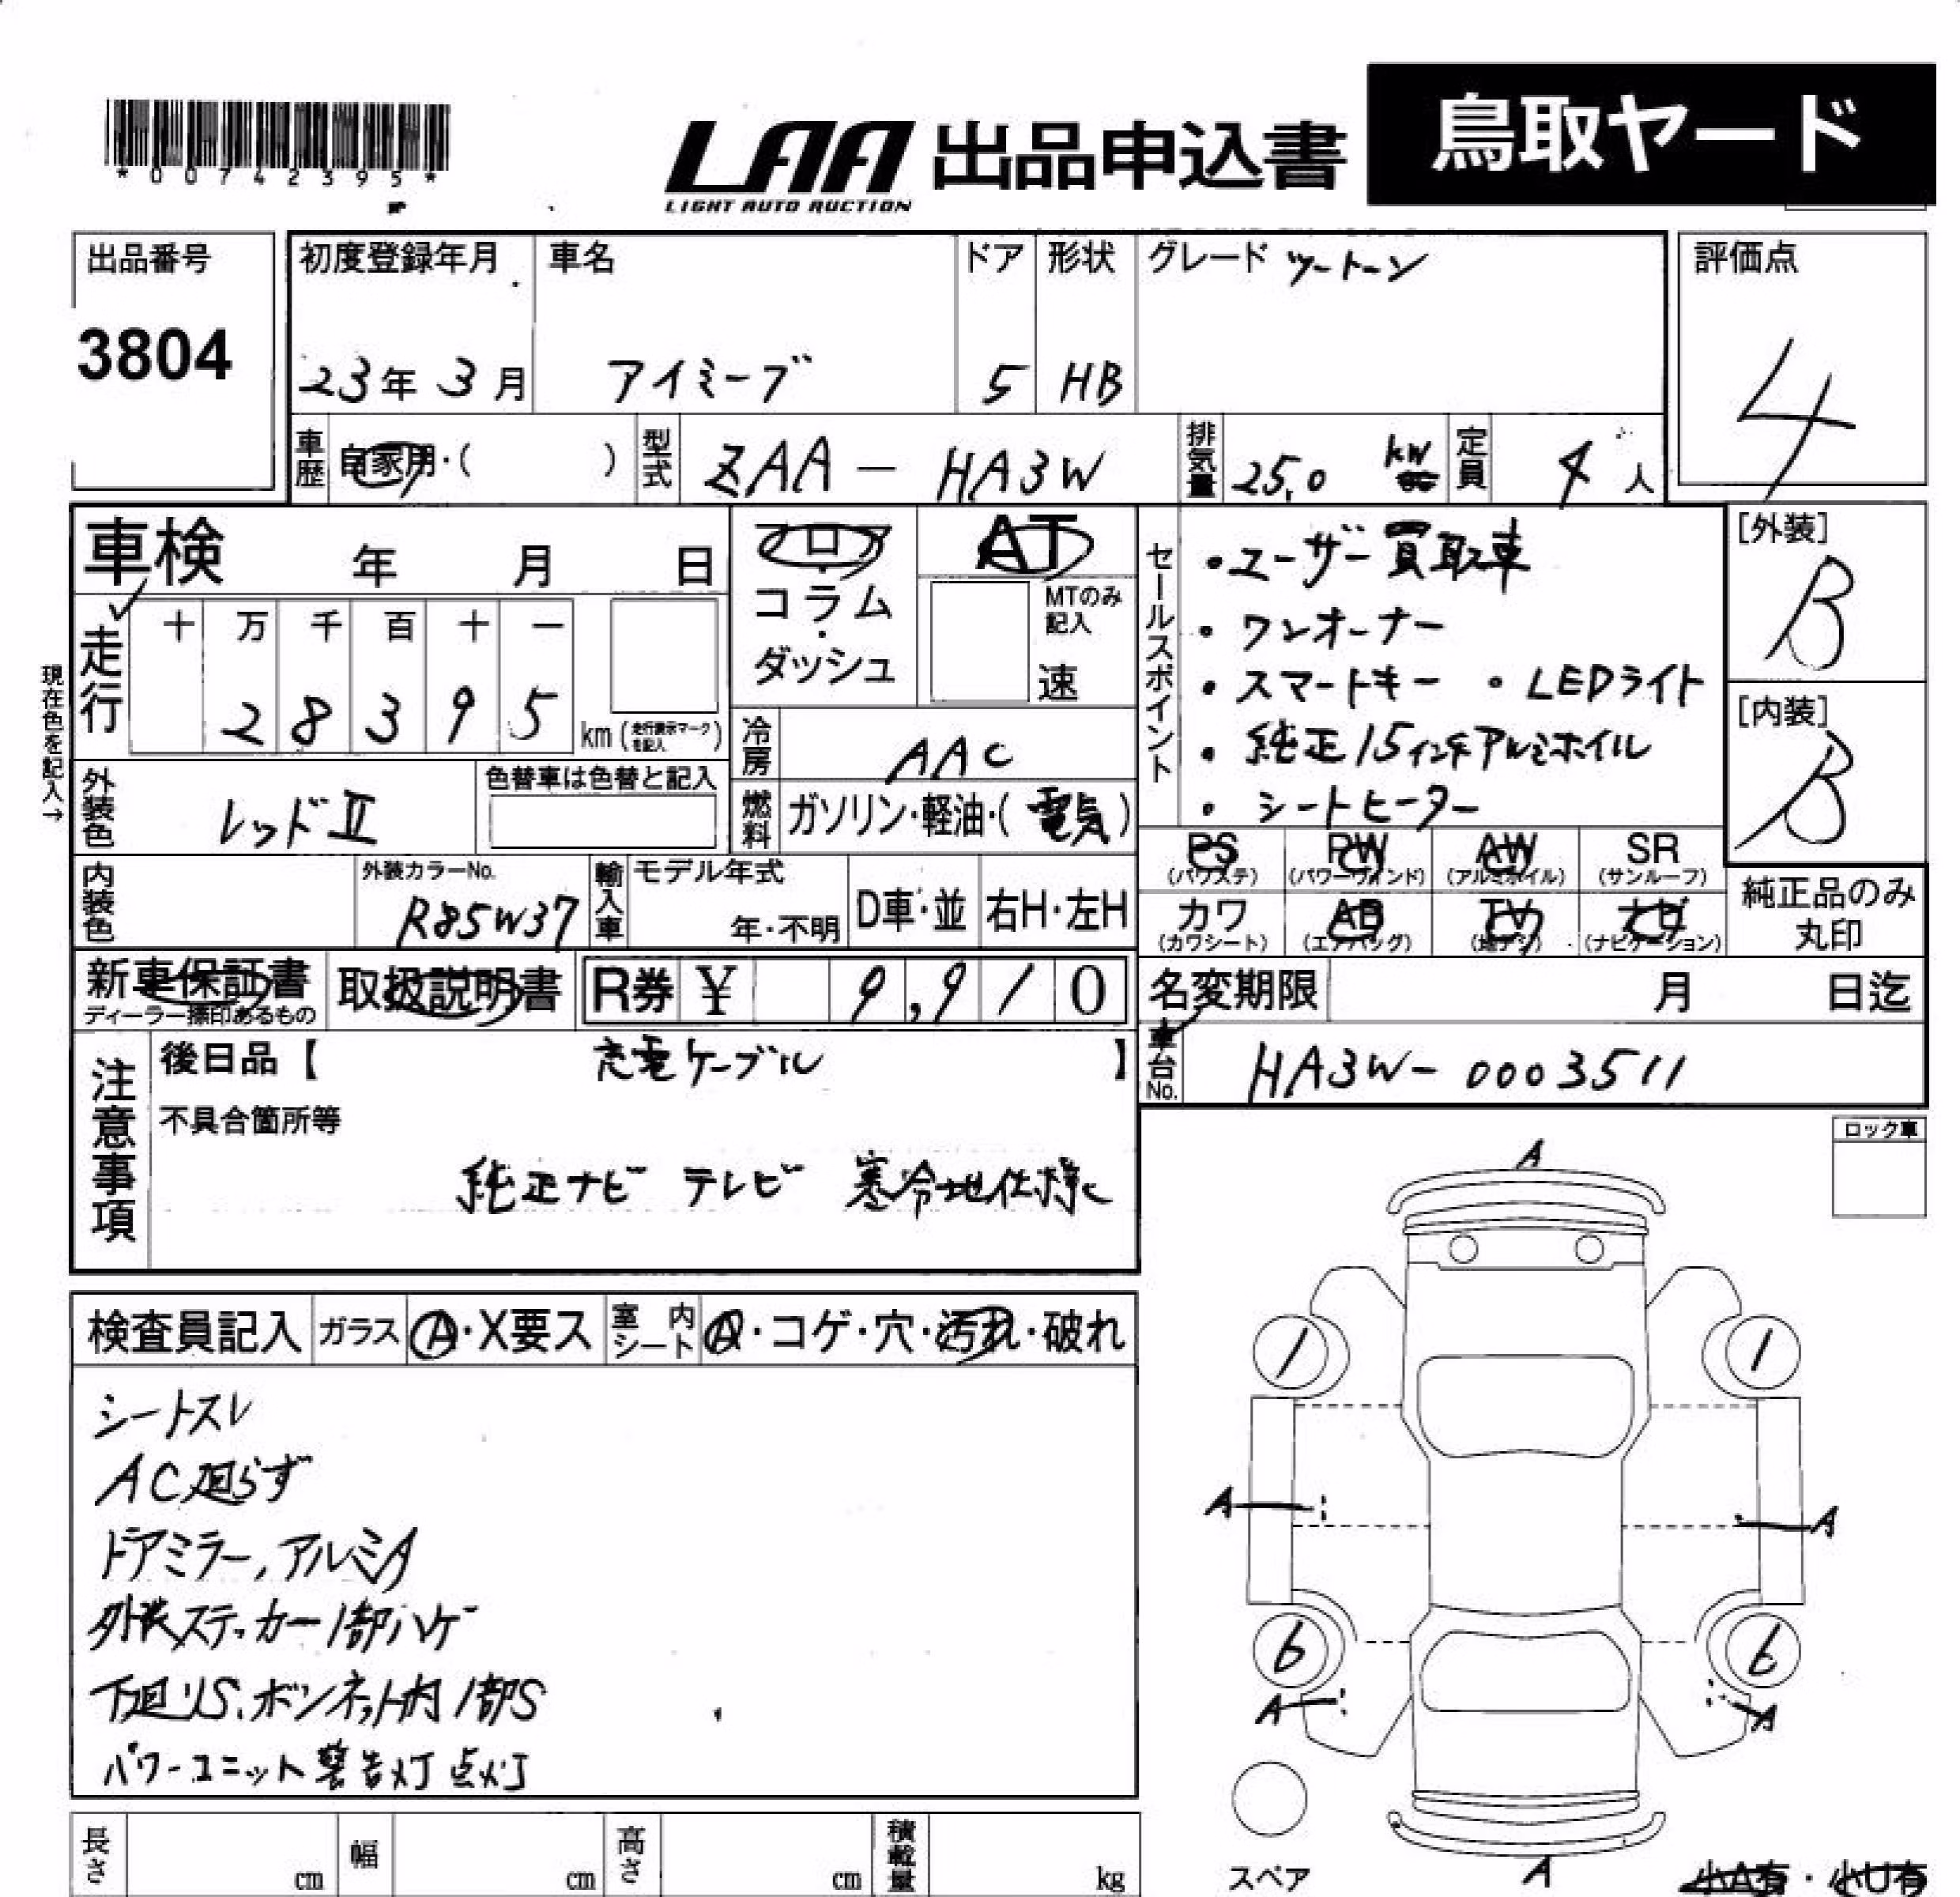 *00742395*
LAA 出品申込書 鳥取ヤード
LIGHT AUTO AUCTION
出品番号
3804
初度登録年月
23年 3月
車名
アイミーブ
ドア
5
形状
HB
グレード ツートーン
評価点
4
車歴 自家用・( )
型式 ZAA－HA3W
排気量 25.0 kW
定員 4人
車検 年 月 日
現在色を記入→
走行
十 万 千 百 十 一
2 8 3 9 5
km (走行表示マークを記入)
フロア・コラム・ダッシュ
AT
MTのみ記入
速
冷房 AAC
燃料 ガソリン・軽油・(電気)
セールスポイント
・ユーザー買取車
・ワンオーナー
・スマートキー ・LEDライト
・純正15インチアルミホイル
・シートヒーター
[外装]
B
[内装]
B
外装色 レッドⅡ
色替車は色替と記入
内装色
外装カラーNo.
R85W37
輸入車
モデル年式
年・不明
D車・並
右H・左H
PS (パワステ)
PW (パワーウィンド)
AW (アルミホイル)
SR (サンルーフ)
カワ (カワシート)
AB (エアバッグ)
TV (地デジ)
ナビ (ナビゲーション)
純正品のみ丸印
新車保証書
ディーラー捺印あるもの
取扱説明書
R券 ¥ 9,910
名変期限 月 日迄
車台No. HA3W-0003511
注意事項
後日品【 充電ケーブル 】
不具合箇所等
純正ナビ テレビ 寒冷地仕様
ロック車
検査員記入
ガラス A・X要ス
室内シート A・コゲ・穴・汚れ・破れ
シートスレ
AC廻らず
ドアミラー,アルミA
外装ステッカー1部ハゲ
下廻りS、ボンネット内1部S
パワーユニット警告灯点灯
A
1 1
A A
6 6
A A
スペア
A
小A有・小U有
長さ cm
幅 cm
高さ cm
積載量 kg